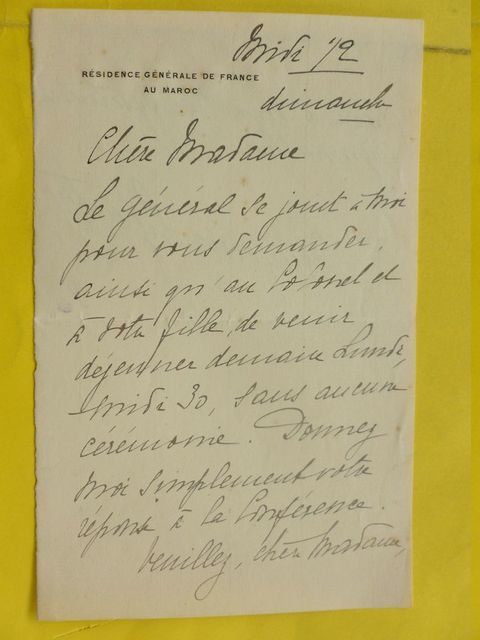 Midi 1/2
RÉSIDENCE GÉNÉRALE DE FRANCE
AU MAROC
dimanche
Chère Madame
Le général se joint à moi
pour vous demander,
ainsi qu'au Colonel et
à votre fille, de venir
déjeuner demain Lundi,
midi 30, sans aucune
cérémonie. Donnez
moi simplement votre
réponse à la Conférence.
Veuillez, chère Madame,